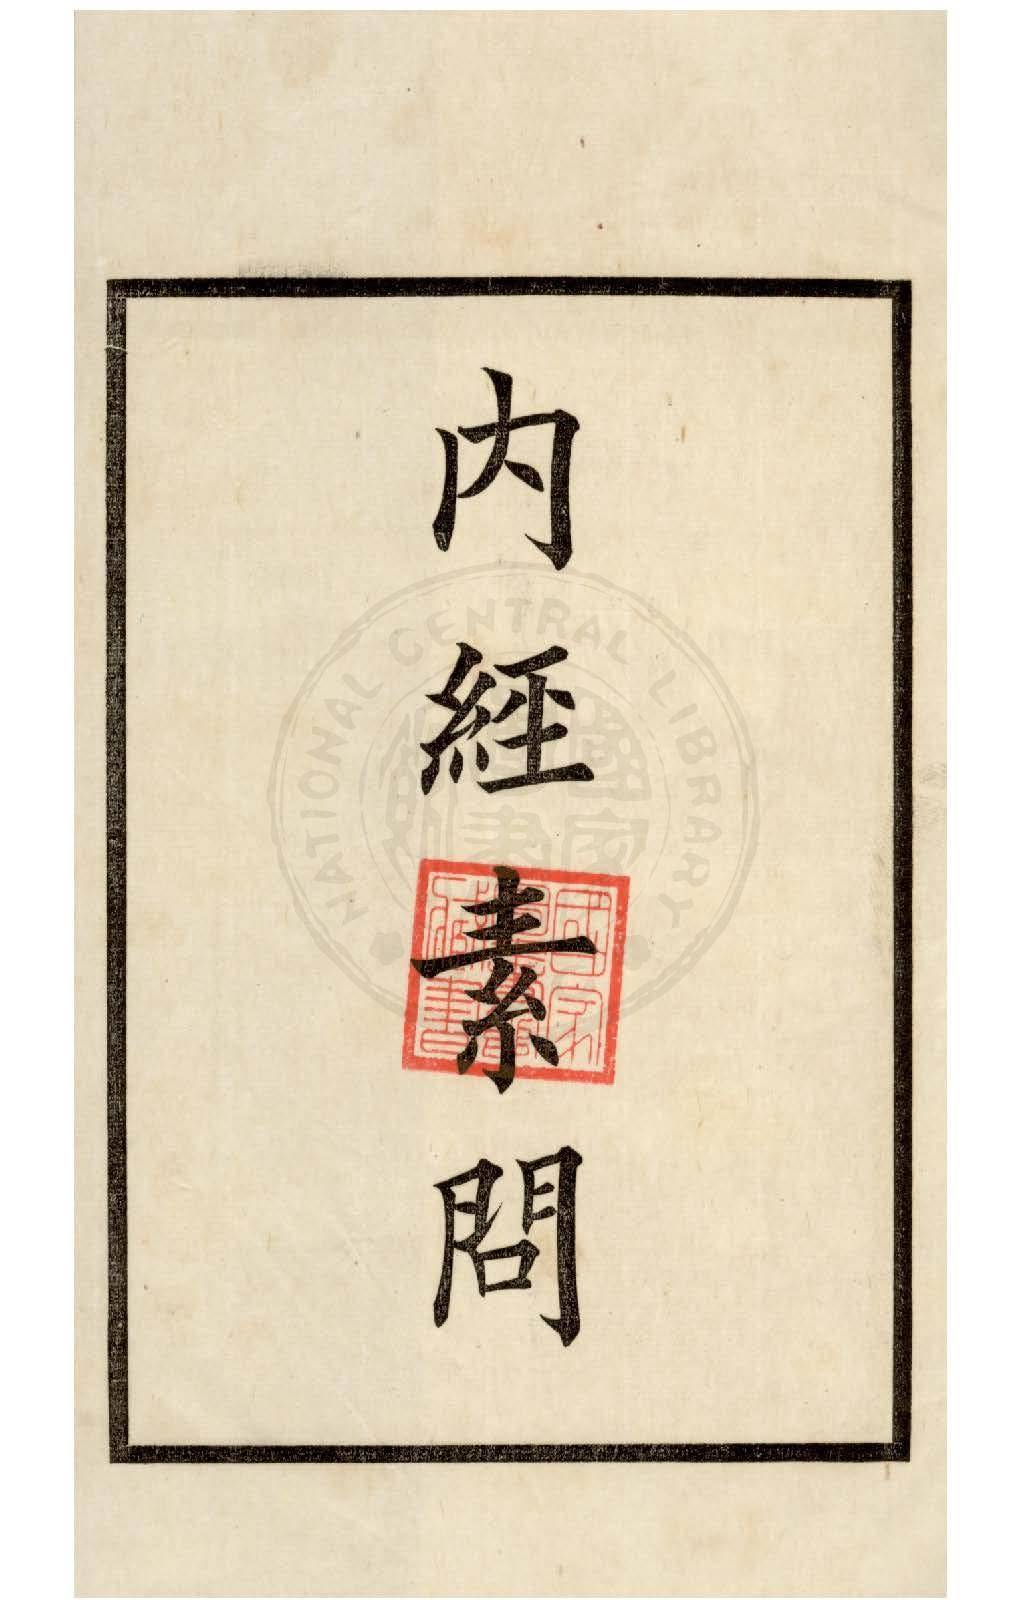 內經素問
NATIONAL CENTRAL LIBRARY
國家圖書館